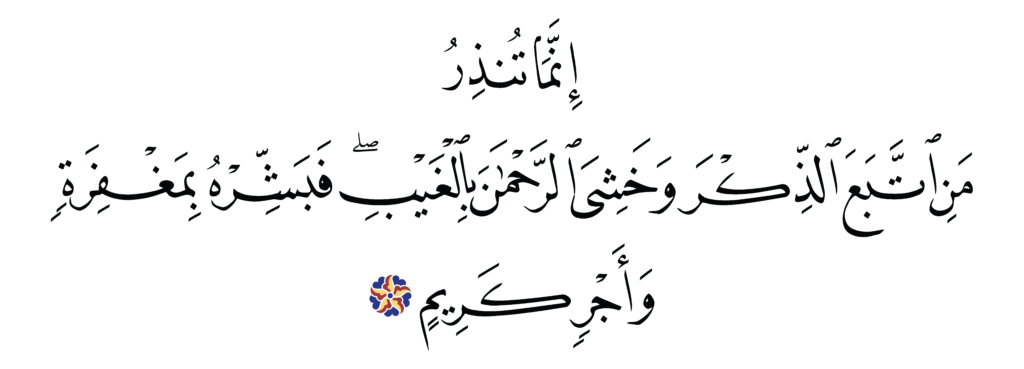 إِنَّمَا تُنذِرُ
مَنِ ٱتَّبَعَ ٱلذِّكْرَ وَخَشِىَ ٱلرَّحْمَٰنَ بِٱلْغَيْبِ ۖ فَبَشِّرْهُ بِمَغْفِرَةٍ
وَأَجْرٍ كَرِيمٍ